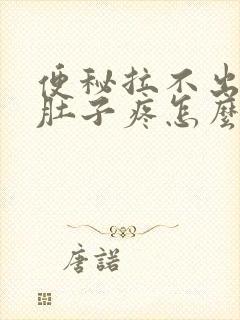 便秘拉不出
肚子疼怎麼
唐諾